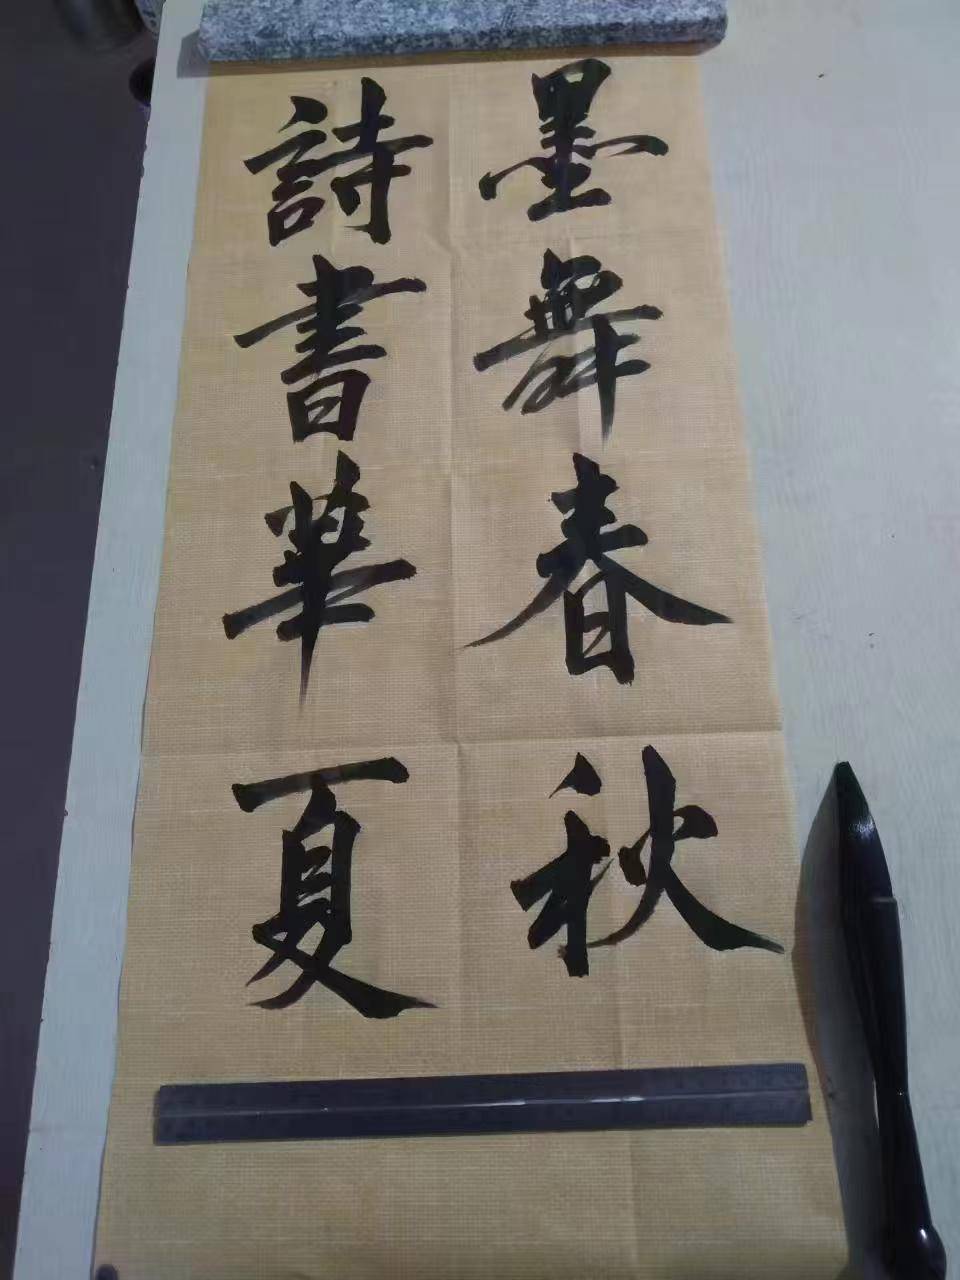 墨舞春秋
詩書華夏